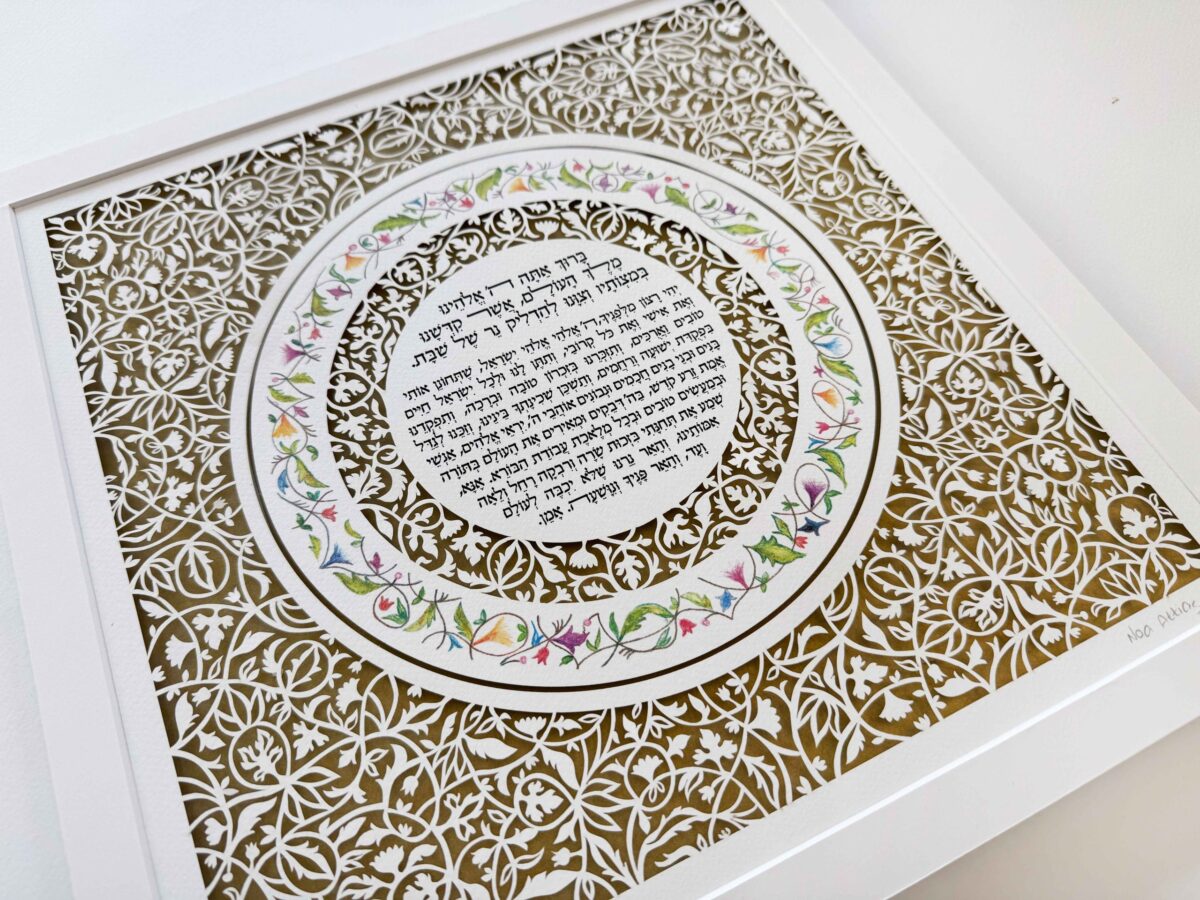 בָּרוּךְ אַתָּה ה' אֱלֹהֵינוּ
מֶלֶךְ הָעוֹלָם, אֲשֶׁר קִדְּשָׁנוּ
בְּמִצְוֹתָיו וְצִוָּנוּ לְהַדְלִיק נֵר שֶׁל שַׁבָּת.
יְהִי רָצוֹן מִלְּפָנֶיךָ, ה' אֱלֹהַי אֱלֹהֵי יִשְׂרָאֵל, שֶׁתְּחוֹנֵן אוֹתִי
וְאֶת אִישִׁי וְאֶת כָּל קְרוֹבַי, וְתִתֵּן לָנוּ וּלְכָל יִשְׂרָאֵל חַיִּים
טוֹבִים וַאֲרֻכִּים, וְתִזְכְּרֵנוּ בְּזִכְרוֹן טוֹבָה וּבְרָכָה, וְתִפְקְדֵנוּ
בִּפְקֻדַּת יְשׁוּעָה וְרַחֲמִים, וְתַשְׁכֵּן שְׁכִינָתְךָ בֵּינֵינוּ, וְזַכֵּנוּ לְגַדֵּל
בָּנִים וּבְנֵי בָנִים חֲכָמִים וּנְבוֹנִים אוֹהֲבֵי ה', יִרְאֵי אֱלֹהִים, אַנְשֵׁי
אֱמֶת זֶרַע קֹדֶשׁ, בַּה' דְּבֵקִים וּמְאִירִים אֶת הָעוֹלָם בַּתּוֹרָה
וּבְמַעֲשִׂים טוֹבִים וּבְכָל מְלֶאכֶת עֲבוֹדַת הַבּוֹרֵא. אָנָּא,
שְׁמַע אֶת תְּחִנָּתִי בִּזְכוּת שָׂרָה וְרִבְקָה רָחֵל וְלֵאָה
אִמּוֹתֵינוּ, וְהָאֵר נֵרֵנוּ שֶׁלֹּא יִכְבֶּה לְעוֹלָם
וָעֶד, וְהָאֵר פָּנֶיךָ וְנִוָּשֵׁעָה, אָמֵן.
Noa Attias